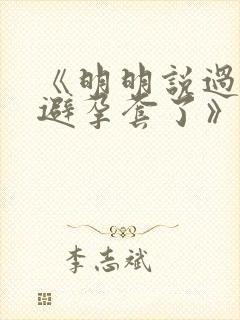 《明明説過
避孕套了》
李志斌